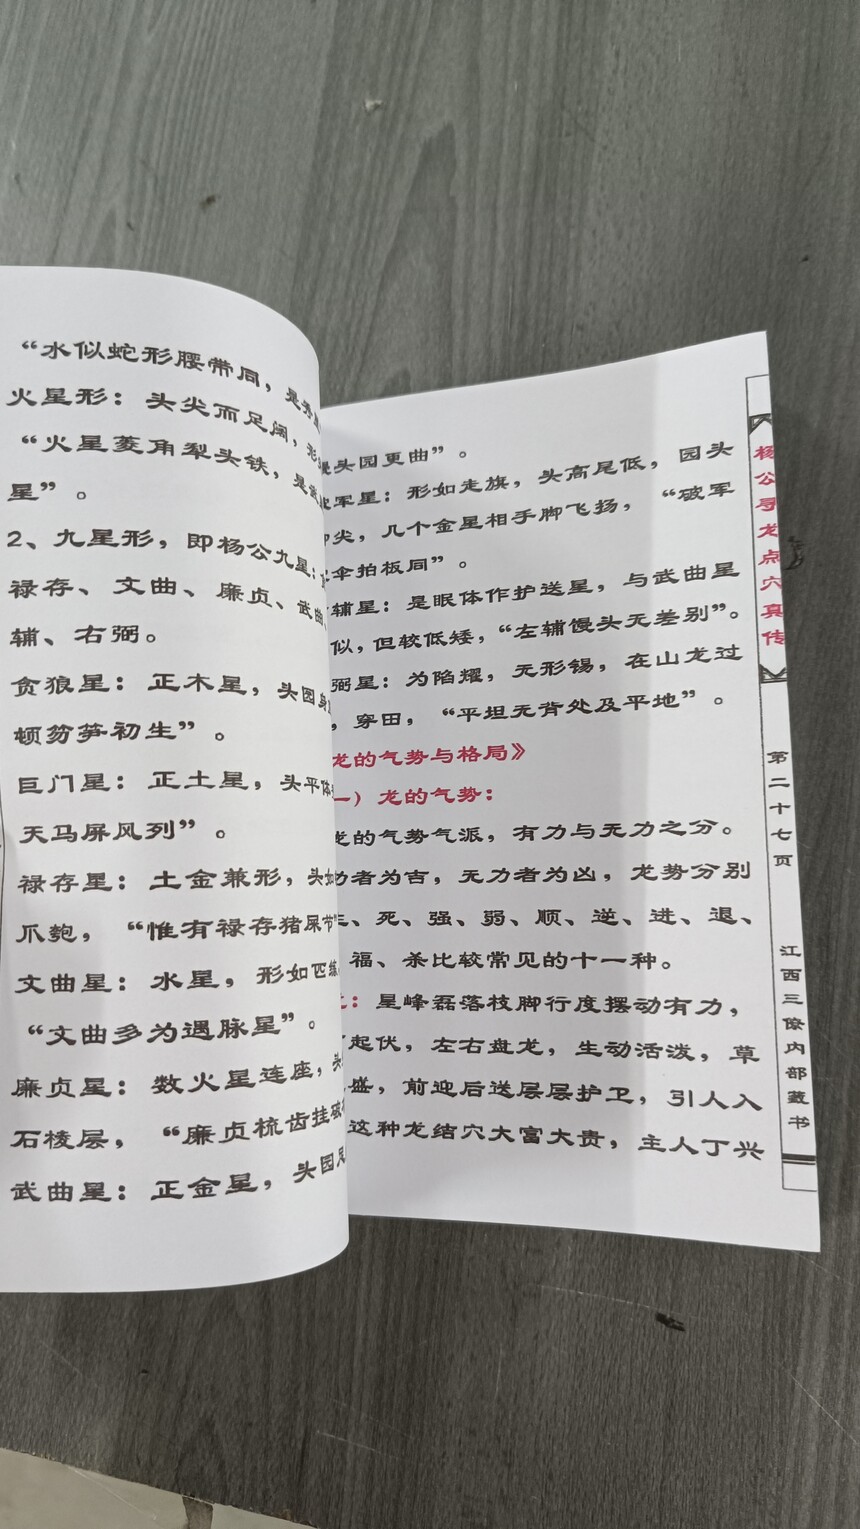 “水似蛇形腰带同，是秀
火星形：头尖而足阔，形
“火星菱角犁头铁，是
星”。
2、九星形，即杨公九星：
禄存、文曲、廉贞、武曲
辅、右弼。
贪狼星：正木星，头园身
顿笏笋初生”。
巨门星：正土星，头平体
天马屏风列”。
禄存星：土金兼形，头如
爪匏，“惟有禄存猪屎节”
文曲星：水星，形如匹练
“文曲多为遇脉星”。
廉贞星：数火星连座，头
石棱层，“廉贞梳齿挂破
武曲星：正金星，头园足
馒头园更曲”。
破军星：形如走旗，头高尾低，园头
脚尖，几个金星相手脚飞扬，“破军
伞拍板同”。
辅星：是眠体作护送星，与武曲星
似，但较低矮，“左辅馒头无差别”。
弼星：为陷耀，无形锡，在山龙过
，穿田，“平坦无背处及平地”。
龙的气势与格局》
一）龙的气势：
龙的气势气派，有力与无力之分。
力者为吉，无力者为凶，龙势分别
生、死、强、弱、顺、逆、进、退、
、福、杀比较常见的十一种。
：星峰磊落枝脚行度摆动有力，
起伏，左右盘龙，生动活泼，草
盛，前迎后送层层护卫，引人入
这种龙结穴大富大贵，主人丁兴
杨公寻龙点穴真传
第二十七页
江西三僚内部藏书